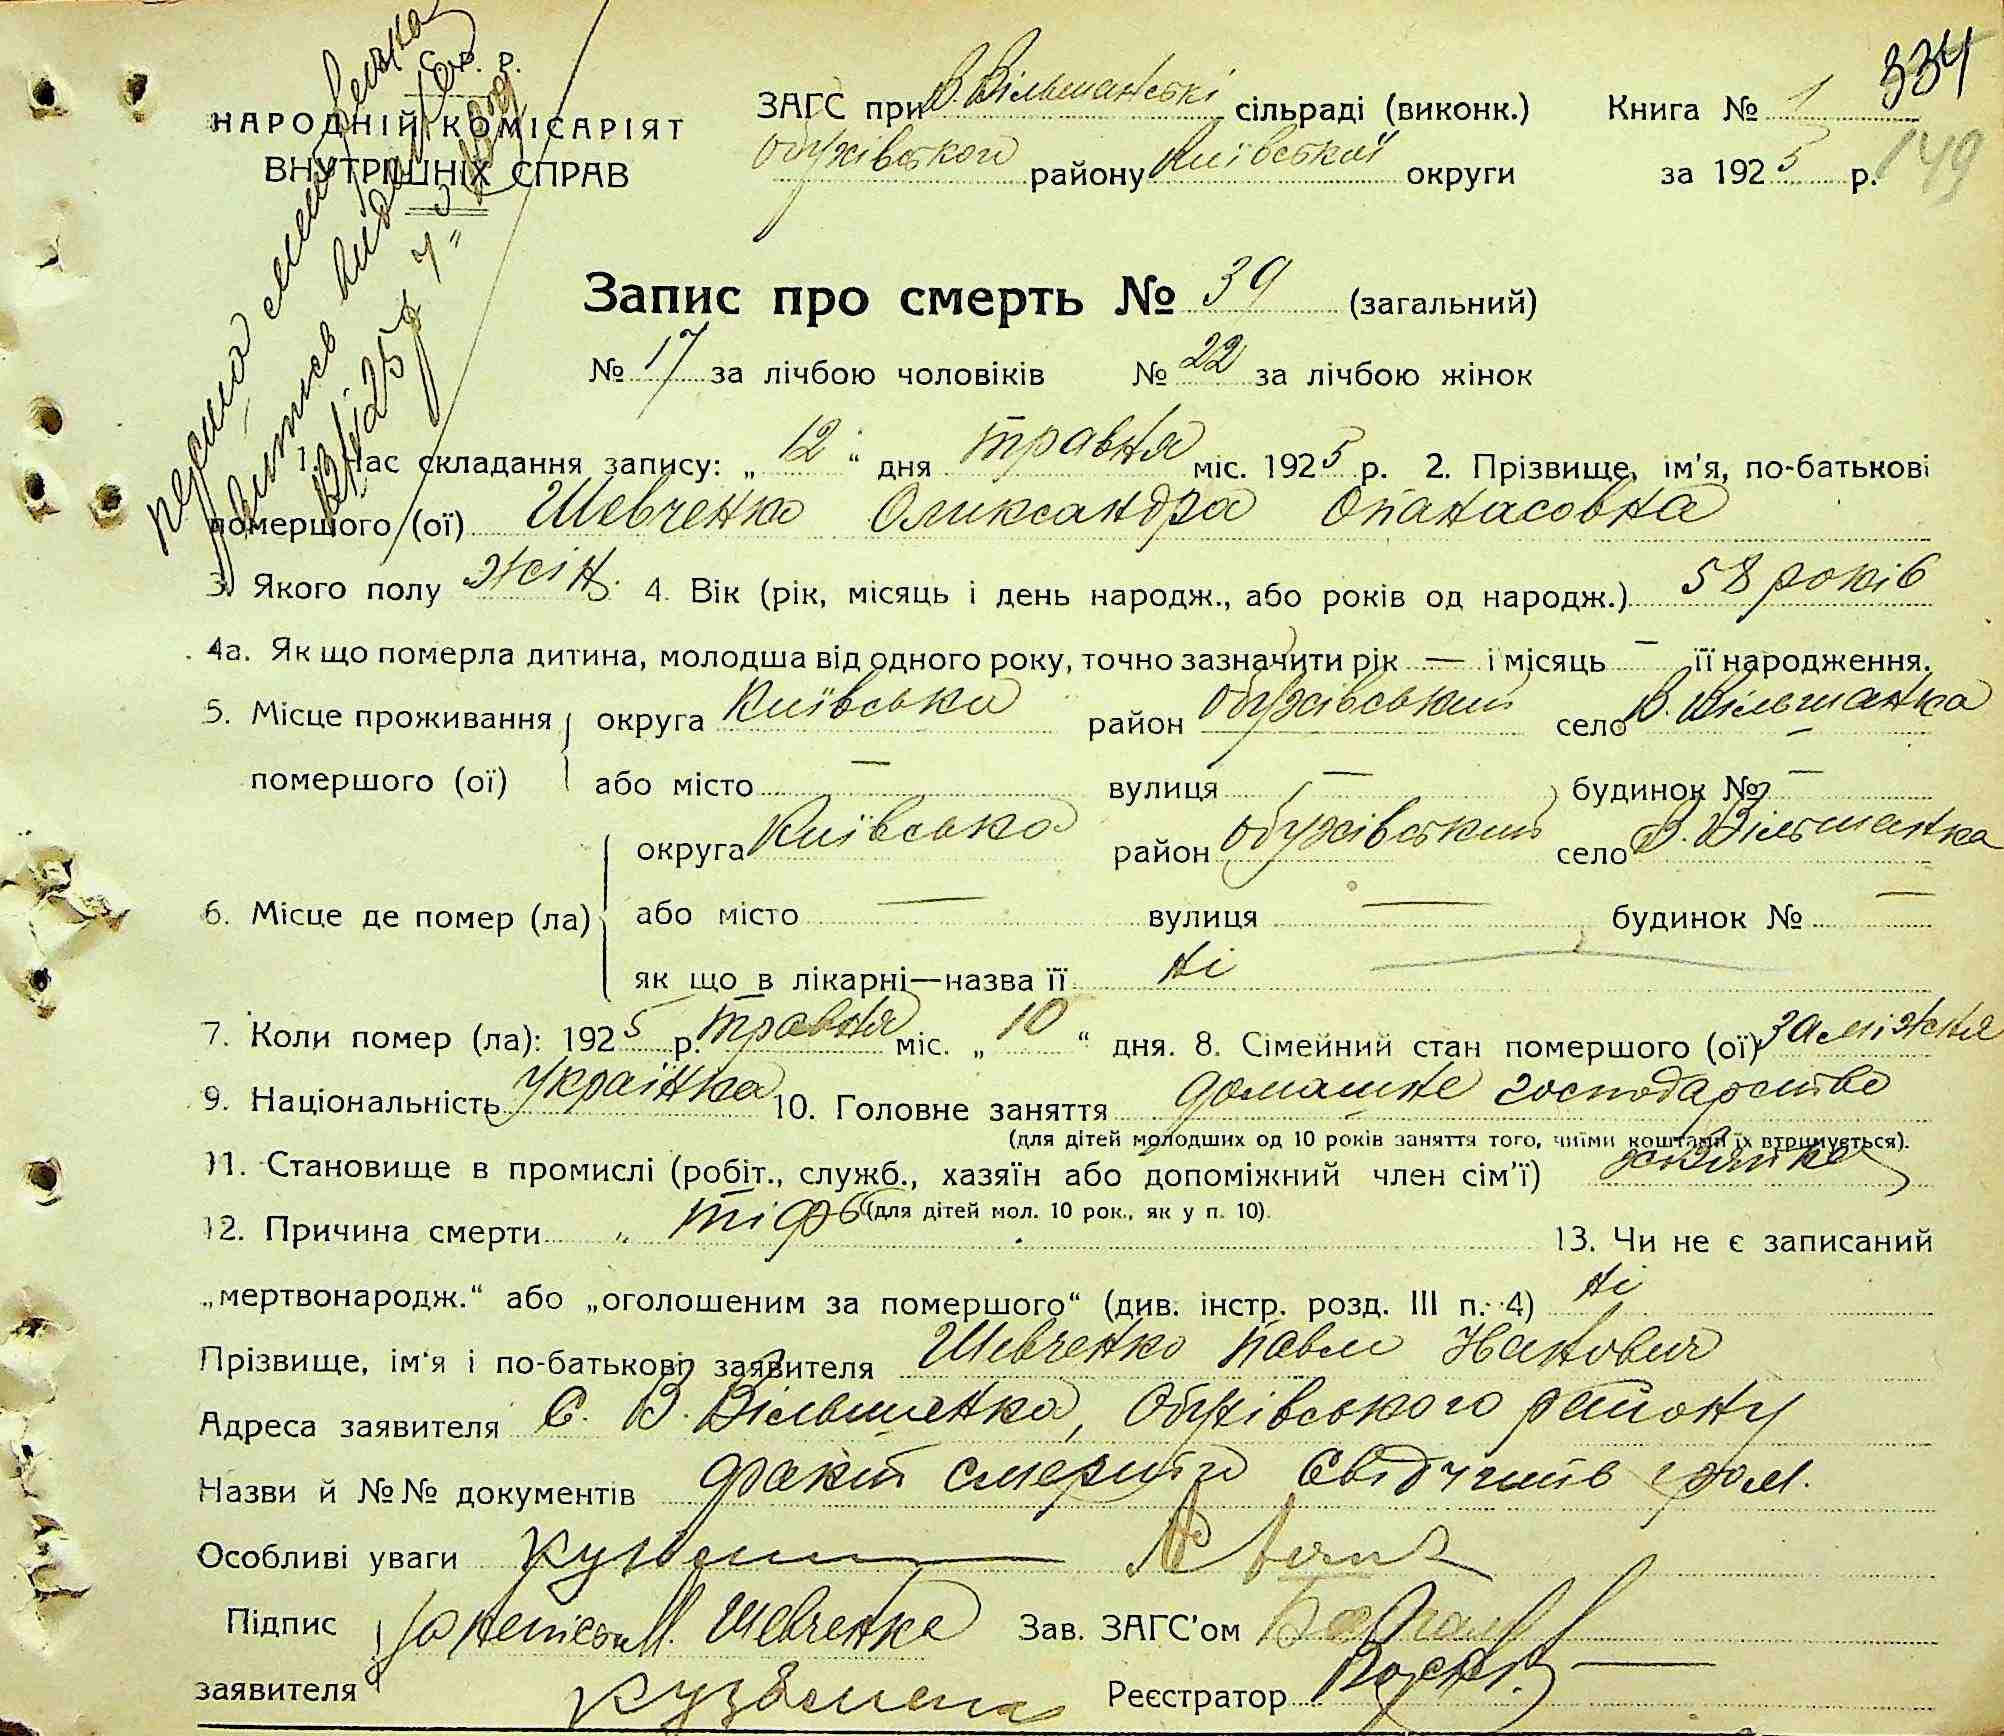 334
С. Р. Р.
НАРОДНІЙ КОМІСАРІЯТ
ВНУТРІШНІХ СПРАВ
ЗАГС при В. Вільшанські сільраді (виконк.) Книга № 1
Обухівского району Київської округи за 1925 р.
149
Запис про смерть № 39 (загальний)
№ 17 за лічбою чоловіків № 22 за лічбою жінок
1. Час складання запису: „12“ дня травня міс. 1925 р. 2. Прізвище, ім'я, по-батькові
помершого (ої) Шевченко Олександра Опанасовна
3. Якого полу жін. 4. Вік (рік, місяць і день народж., або років од народж.) 58 років
4а. Як що померла дитина, молодша від одного року, точно зазначити рік — і місяць — її народження.
5. Місце проживання округа Київська район Обухівський село В. Вільшанка
помершого (ої) або місто — вулиця — будинок № —
округа Київська район Обухівський село В. Вільшанка
6. Місце де помер (ла) або місто — вулиця — будинок № —
як що в лікарні—назва її ні
7. Коли помер (ла): 1925 р. травня міс. „10“ дня. 8. Сімейний стан помершого (ої) заміжня
9. Національність Українка 10. Головне заняття домашне господарство
(для дітей молодших од 10 років заняття того, чиїми коштами їх втримується).
11. Становище в промислі (робіт., служб., хазяїн або допоміжний член сім'ї)
(для дітей мол. 10 рок., як у п. 10).
12. Причина смерти „тіф“ 13. Чи не є записаний
„мертвонародж.“ або „оголошеним за помершого“ (див. інстр. розд. III п. 4) ні
Прізвище, ім'я і по-батькові заявителя Шевченко Павло
Адреса заявителя С. В. Вільшанка, Обухівського району
Назви й №№ документів факт смерти свідчить гром.
Особливі уваги
Підпис за непісьм. Шевченка Зав. ЗАГС'ом
заявителя Реєстратор